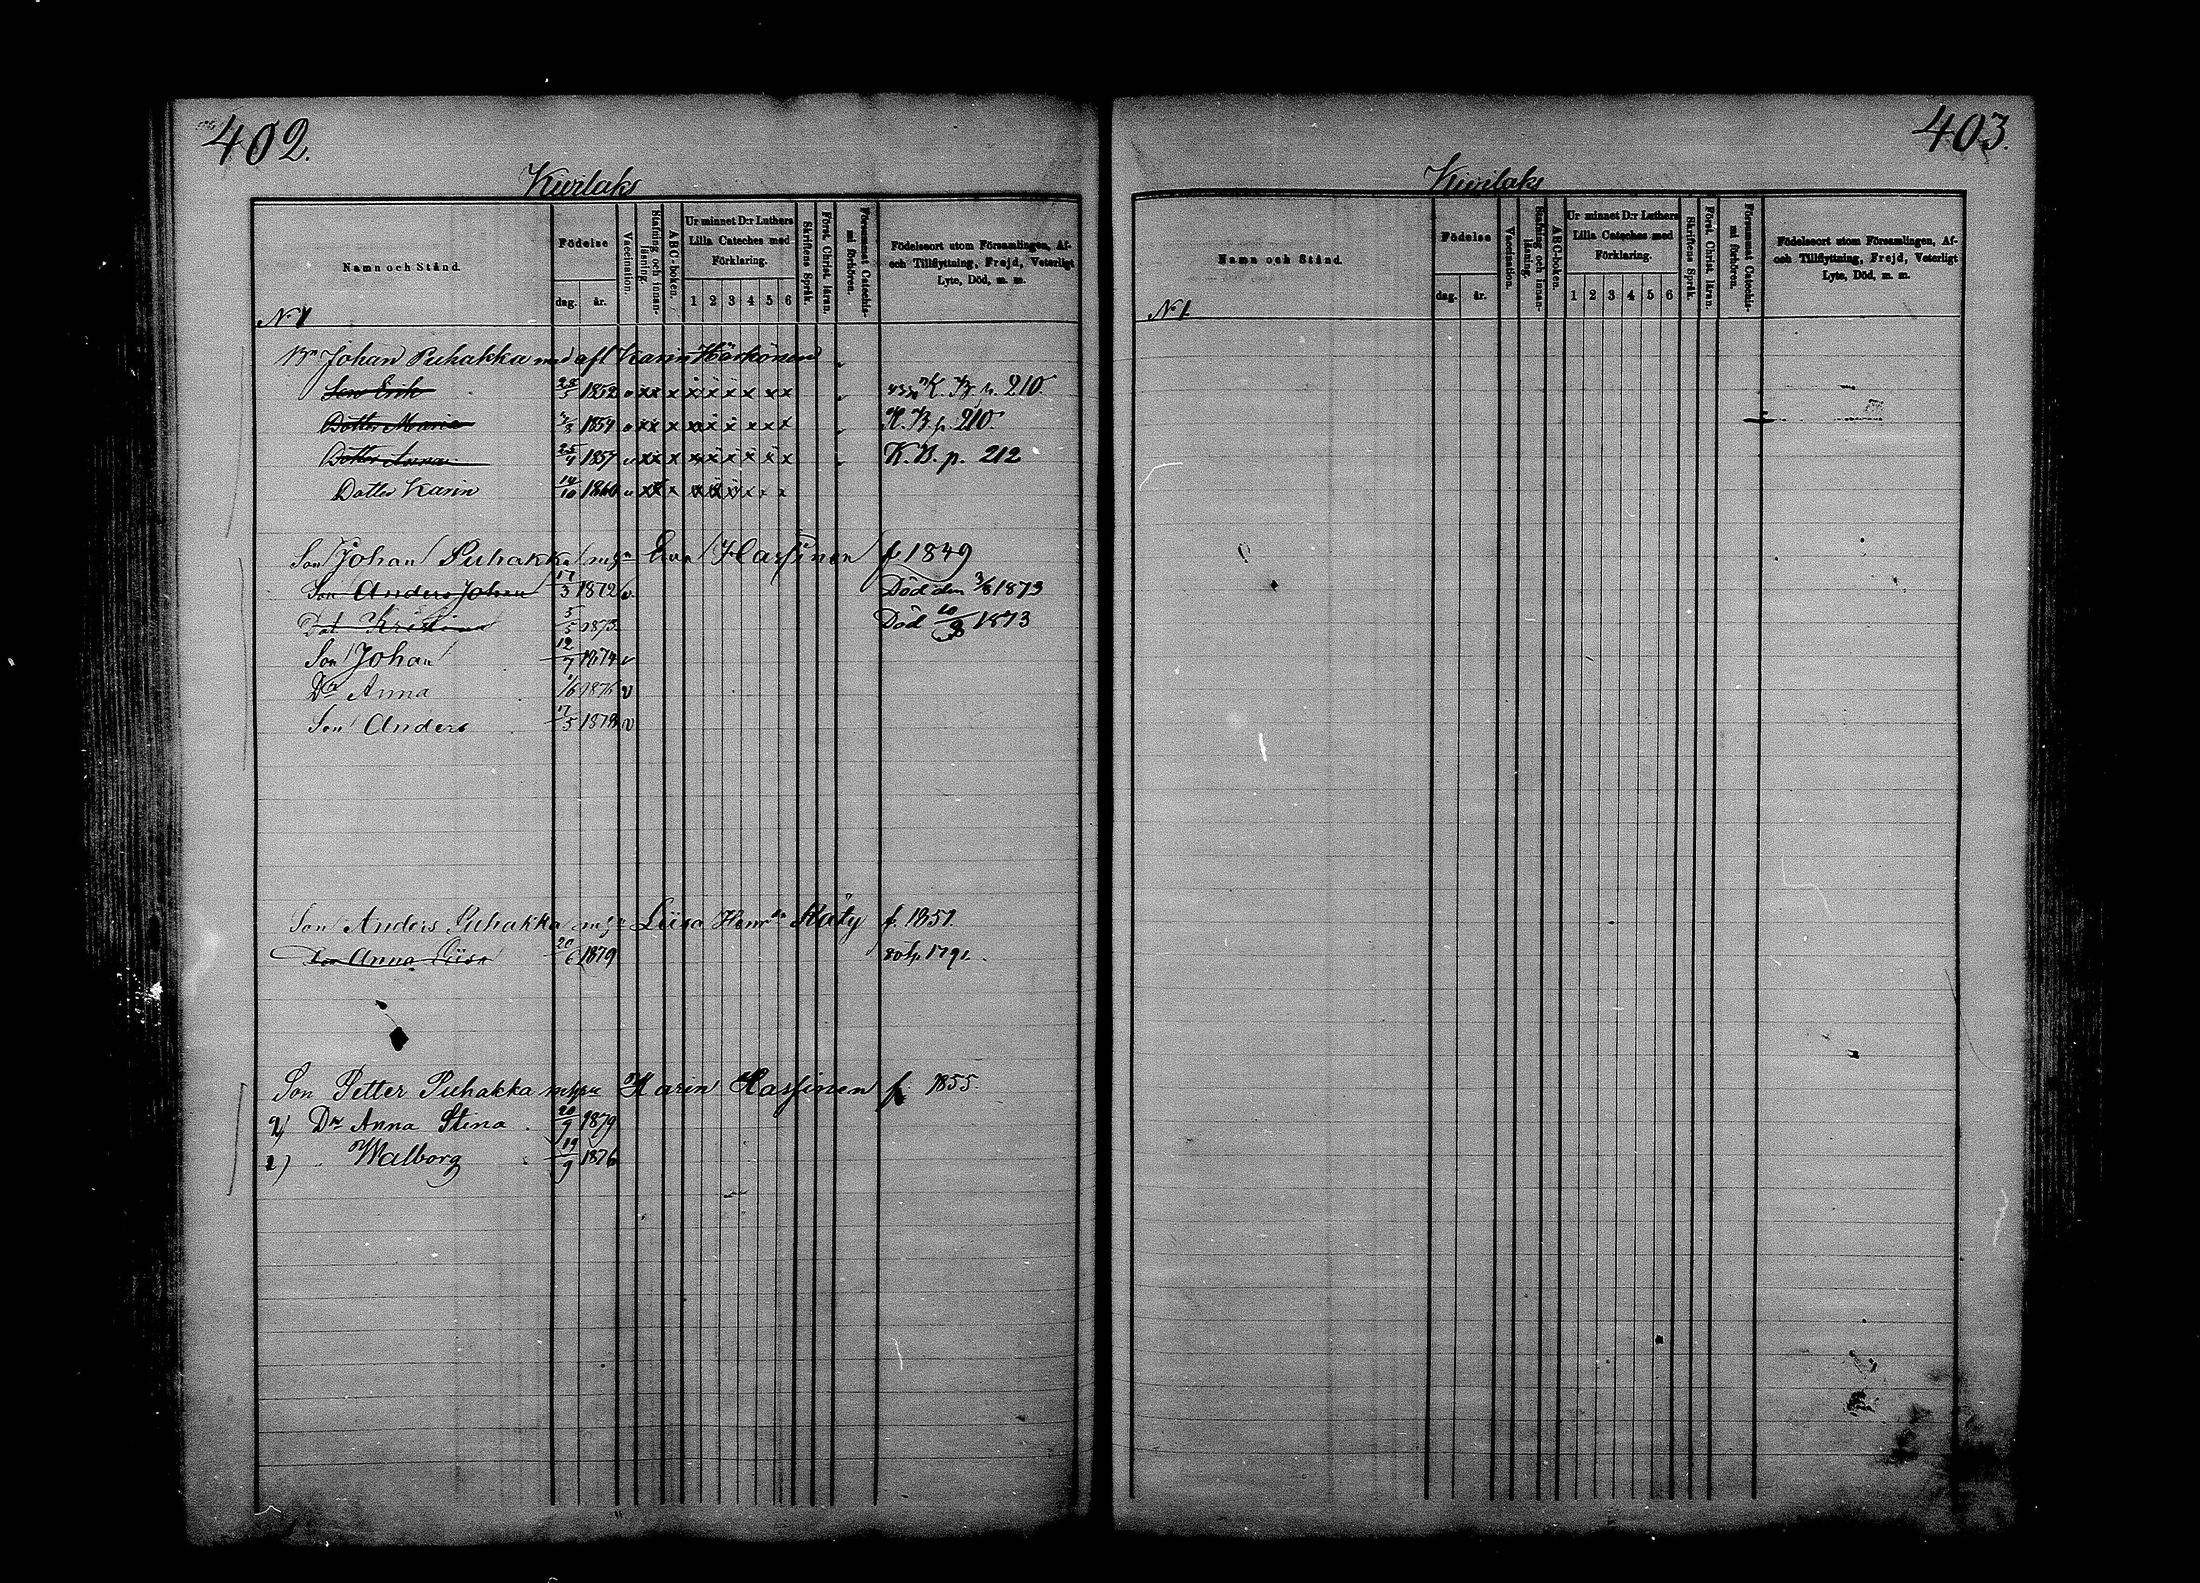 402.
Kivilaks
Namn och Stånd.
Födelse
dag. år.
Vaccination.
Stafning och innanläsning.
ABC-boken.
Ur minnet D:r Luthers Lilla Cateches med Förklaring.
1 2 3 4 5 6
Skriftens Språk.
Först. Christ. läran.
Försummat Catechismi förhören.
Födelseort utom Församlingen, Af- och Tillflyttning, Frejd, Veterligt Lyte, Död, m. m.
N:1
Bn Johan Puhakka med afl Karin Härkönen
Son Erik 1852 v xx x x x x x x x K. B. p. 210.
Dotter Maria 1854 v xx x x x x x x x K. B. p. 210.
Dotter Anna 25/4 1857 v xx x x x x x x x K. B. p. 212
Dotter Karin 14/10 1860 v xx x x x x x x x
Son Johan Puhakka Eva Hassinen f. 1849
Son Anders Johan 17/3 1872 v. Död den 3/8 1873
Dot. Kristina 5/5 1873 Död 10/8 1873
Son Johan 12/7 1874 v
Dr Anna 1/6 1876 v
Son Anders 17/5 1878 v
Son Anders Puhakka Liisa Räty f. 1851.
Anna Liisa 20/6 1879
Son Petter Puhakka Karin Hassinen f. 1855.
2) Dr Anna Stina 20/9 1879
1) " Walborg 19/9 1876
403.
Kivilaks
Namn och Stånd.
Födelse
dag. år.
Vaccination.
Stafning och innanläsning.
ABC-boken.
Ur minnet D:r Luthers Lilla Cateches med Förklaring.
1 2 3 4 5 6
Skriftens Språk.
Först. Christ. läran.
Försummat Catechismi förhören.
Födelseort utom Församlingen, Af- och Tillflyttning, Frejd, Veterligt Lyte, Död, m. m.
N:1.